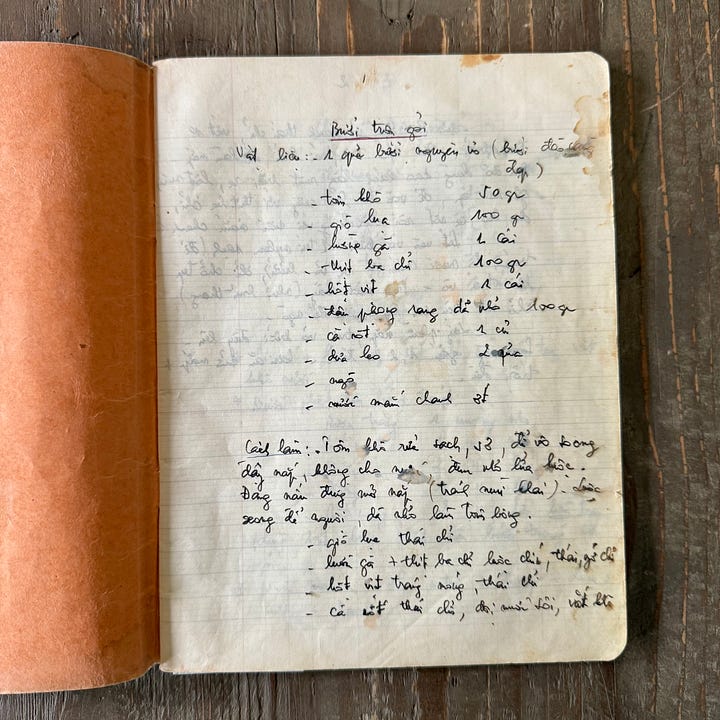 1
Bưởi trộn gỏi
Vật liệu: - 1 quả bưởi nguyên vỏ (bưởi
đẹp)
- tôm khô 50 gr
- giò lụa 100 gr
- lường gà 1 cái
- thịt ba chỉ 100 gr
- hột vịt 1 cái
- đậu phộng rang đã nhỏ 100 gr
- cà rốt 1 củ
- dưa leo 2 quả
- ngò
- nước mắm chanh ớt
Cách làm: . Tôm khô rửa sạch, để vô soong
đậy nắp, không cho đun nhỏ lửa luộc.
Đang nấu đừng mở nắp (tránh mùi khai).
soong để nguội, đã nhỏ làm tôm bông.
- giò lụa thái chỉ
- lườn gà + thịt ba chỉ luộc chín, thái
- hột vịt tráng mỏng, thái chỉ
- cà rốt thái chỉ, muối sôi, vắt khô